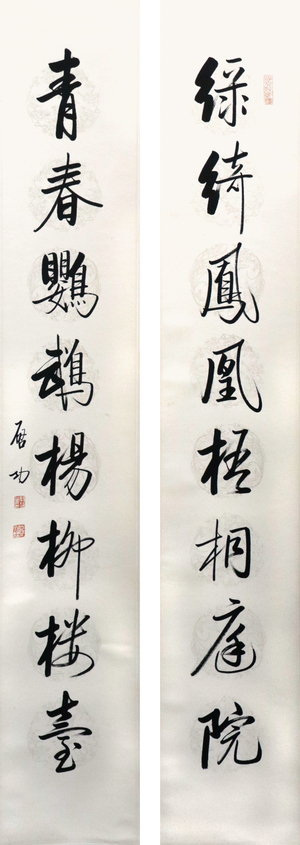 綠綺鳳凰梧桐庭院
青春鸚鵡楊柳樓臺
啟功